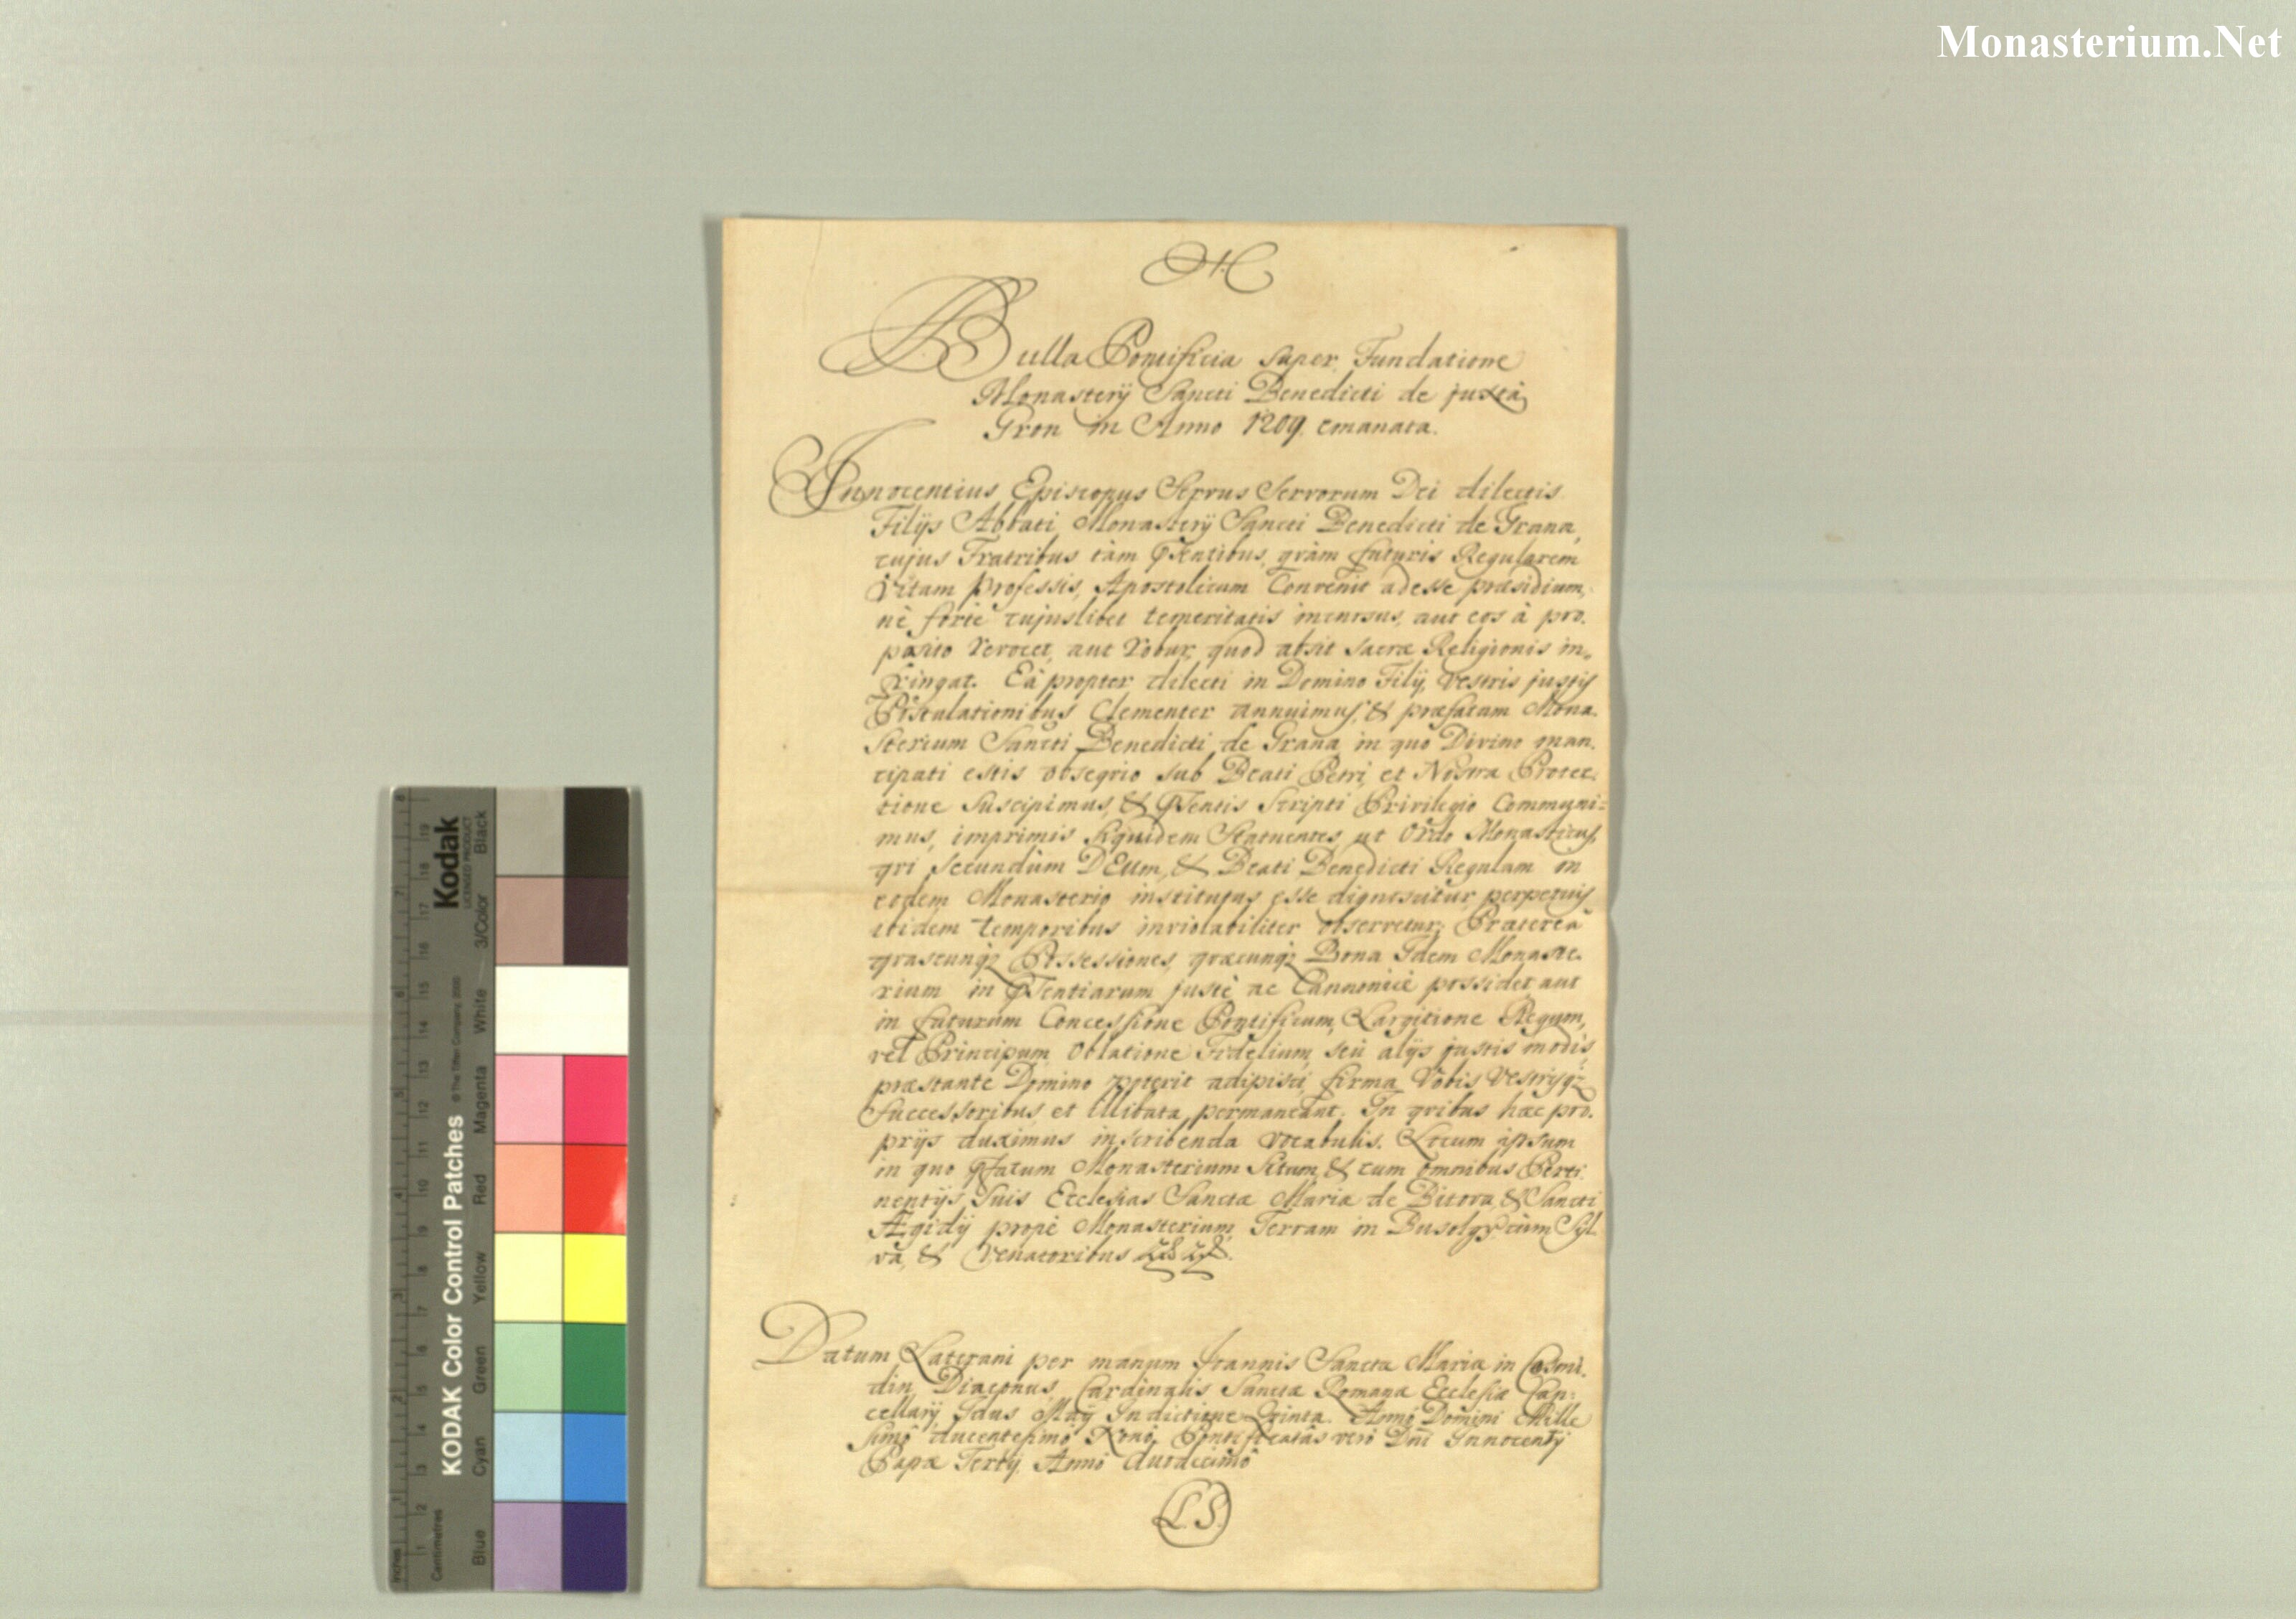 Monasterium.Net
Bulla Pontificia super Fundatione
Monasterÿ Sancti Benedicti de juxtà
Gron in Anno 1209. emanata.
Innocentius Episcopus Servus Servorum Dei dilectis
Filÿs Abbati Monasterÿ Sancti Benedicti de Grana,
cujus Fratribus tàm qvàm futuris Regularem
vitam professis, Apostolicum Convenit adesse præsidium,
nè fortè cujuslibet temeritatis incursus, aut eos à pro.
posito revocet, aut robur, quod absit sacræ Religionis in,,
fringat. Eà propter dilecti in Domino Filÿ, vestris justis
Postulationibus Clementer annuimus, & præfatum Mona.
sterium Sancti Benedicti de Grana in quo Divino man.
cipati estis obseqvio sub Beati Petri, et Nostra Protec.
tione suscipimus, & Scripti Privilegio Communi=
mus, imprimis siqvidem Statuentes, ut Ordo Monasticus,
qvi secundùm DEUm, & Beati Benedicti Regulam in
eodem Monasterio institutus esse dignoscitur, perpetuis
ibidem temporibus inviolabiliter observetur; Prætereà
qvascunq3 Possessiones, qvæcunq3 Bona Idem Monaste.
rium in justè ac Cannonicè possidet aut
in futurum Concessione Pontificum, Largitione Regum,
vel Principum, Oblatione Fidelium, seù alÿs justis modis
præstante Domino poterit adipisci, firma Vobis Vestrisq3
Successoribus et illibata permaneant. In qvibus hæc pro.
prÿs duximus inscribenda vocabulis. Locum ipsum
in quo Monasterium Situm & cum omnibus Perti.
nentÿs Suis Ecclesias Sanctæ Mariæ de Bitova, & Sancti
Ægidÿ propè Monasterium, Terram in cùm Syl.
va, & Venatoribus
Datum Laterani per manum Ioannis Sanctæ Mariæ in Cosmi.
din, Diaconus Cardinalis Sanctæ Romana Ecclesiæ Can=
cellarÿ, Idus Maÿ Indictione Qvinta. Annô Domini Mille
simô ducentesimô Nonô, Pontificatûs verò Dni Innocentÿ
Papæ Tertÿ, Annô duodecimô
L. S.
KODAK Color Control Patches
Kodak
LICENSED PRODUCT
© The Tiffen Company, 2000
Black
3/Color
White
Magenta
Red
Yellow
Green
Cyan
Blue
Centimetres
Inches
1 2 3 4 5 6 7 8 9 10 11 12 13 14 15 16 17 18 19
1 2 3 4 5 6 7 8